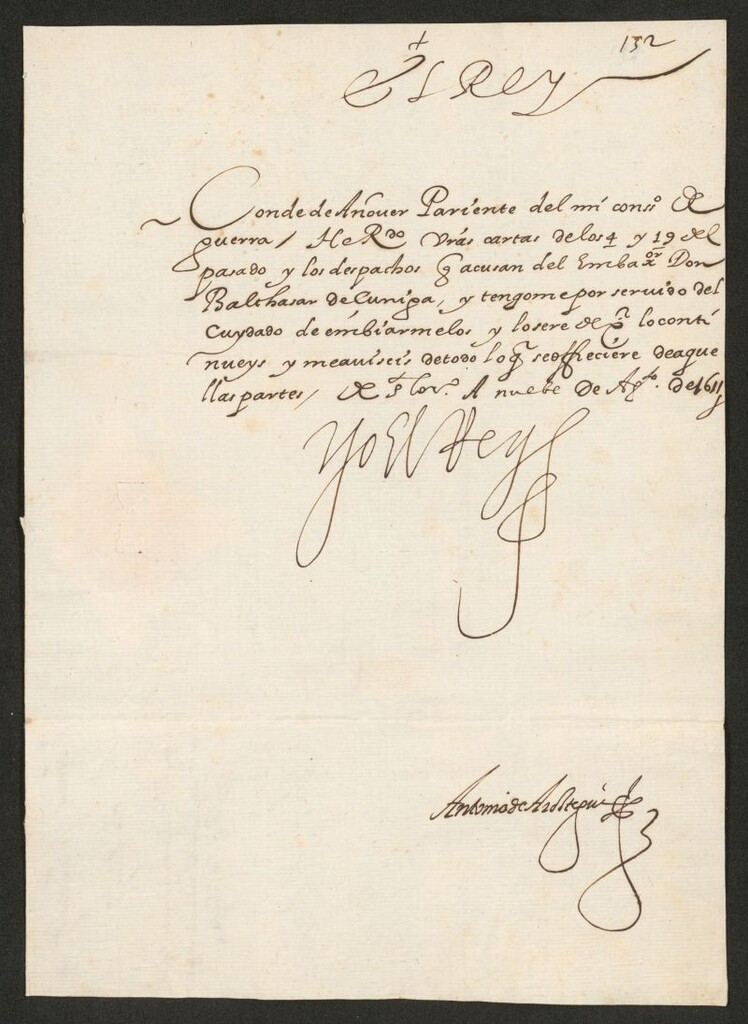 132
El Rey
Conde de Añover Pariente del mi cons.º de
guerra / He R.do vr̃as cartas de los 4 y 19 del
pasado y los despachos q̃ acusan del Embax.or Don
Balthasar de Cuniga, y tengome por servido del
Cuydado de embiarmelos y lo sere de q̃ lo conti
nueys y me aviseis de todo lo q̃ se offreciere de aque
llas partes / de s.t Lor.º A nuebe de Ag.to de 1611
Yo El Rey
Antonio de Aroztegui